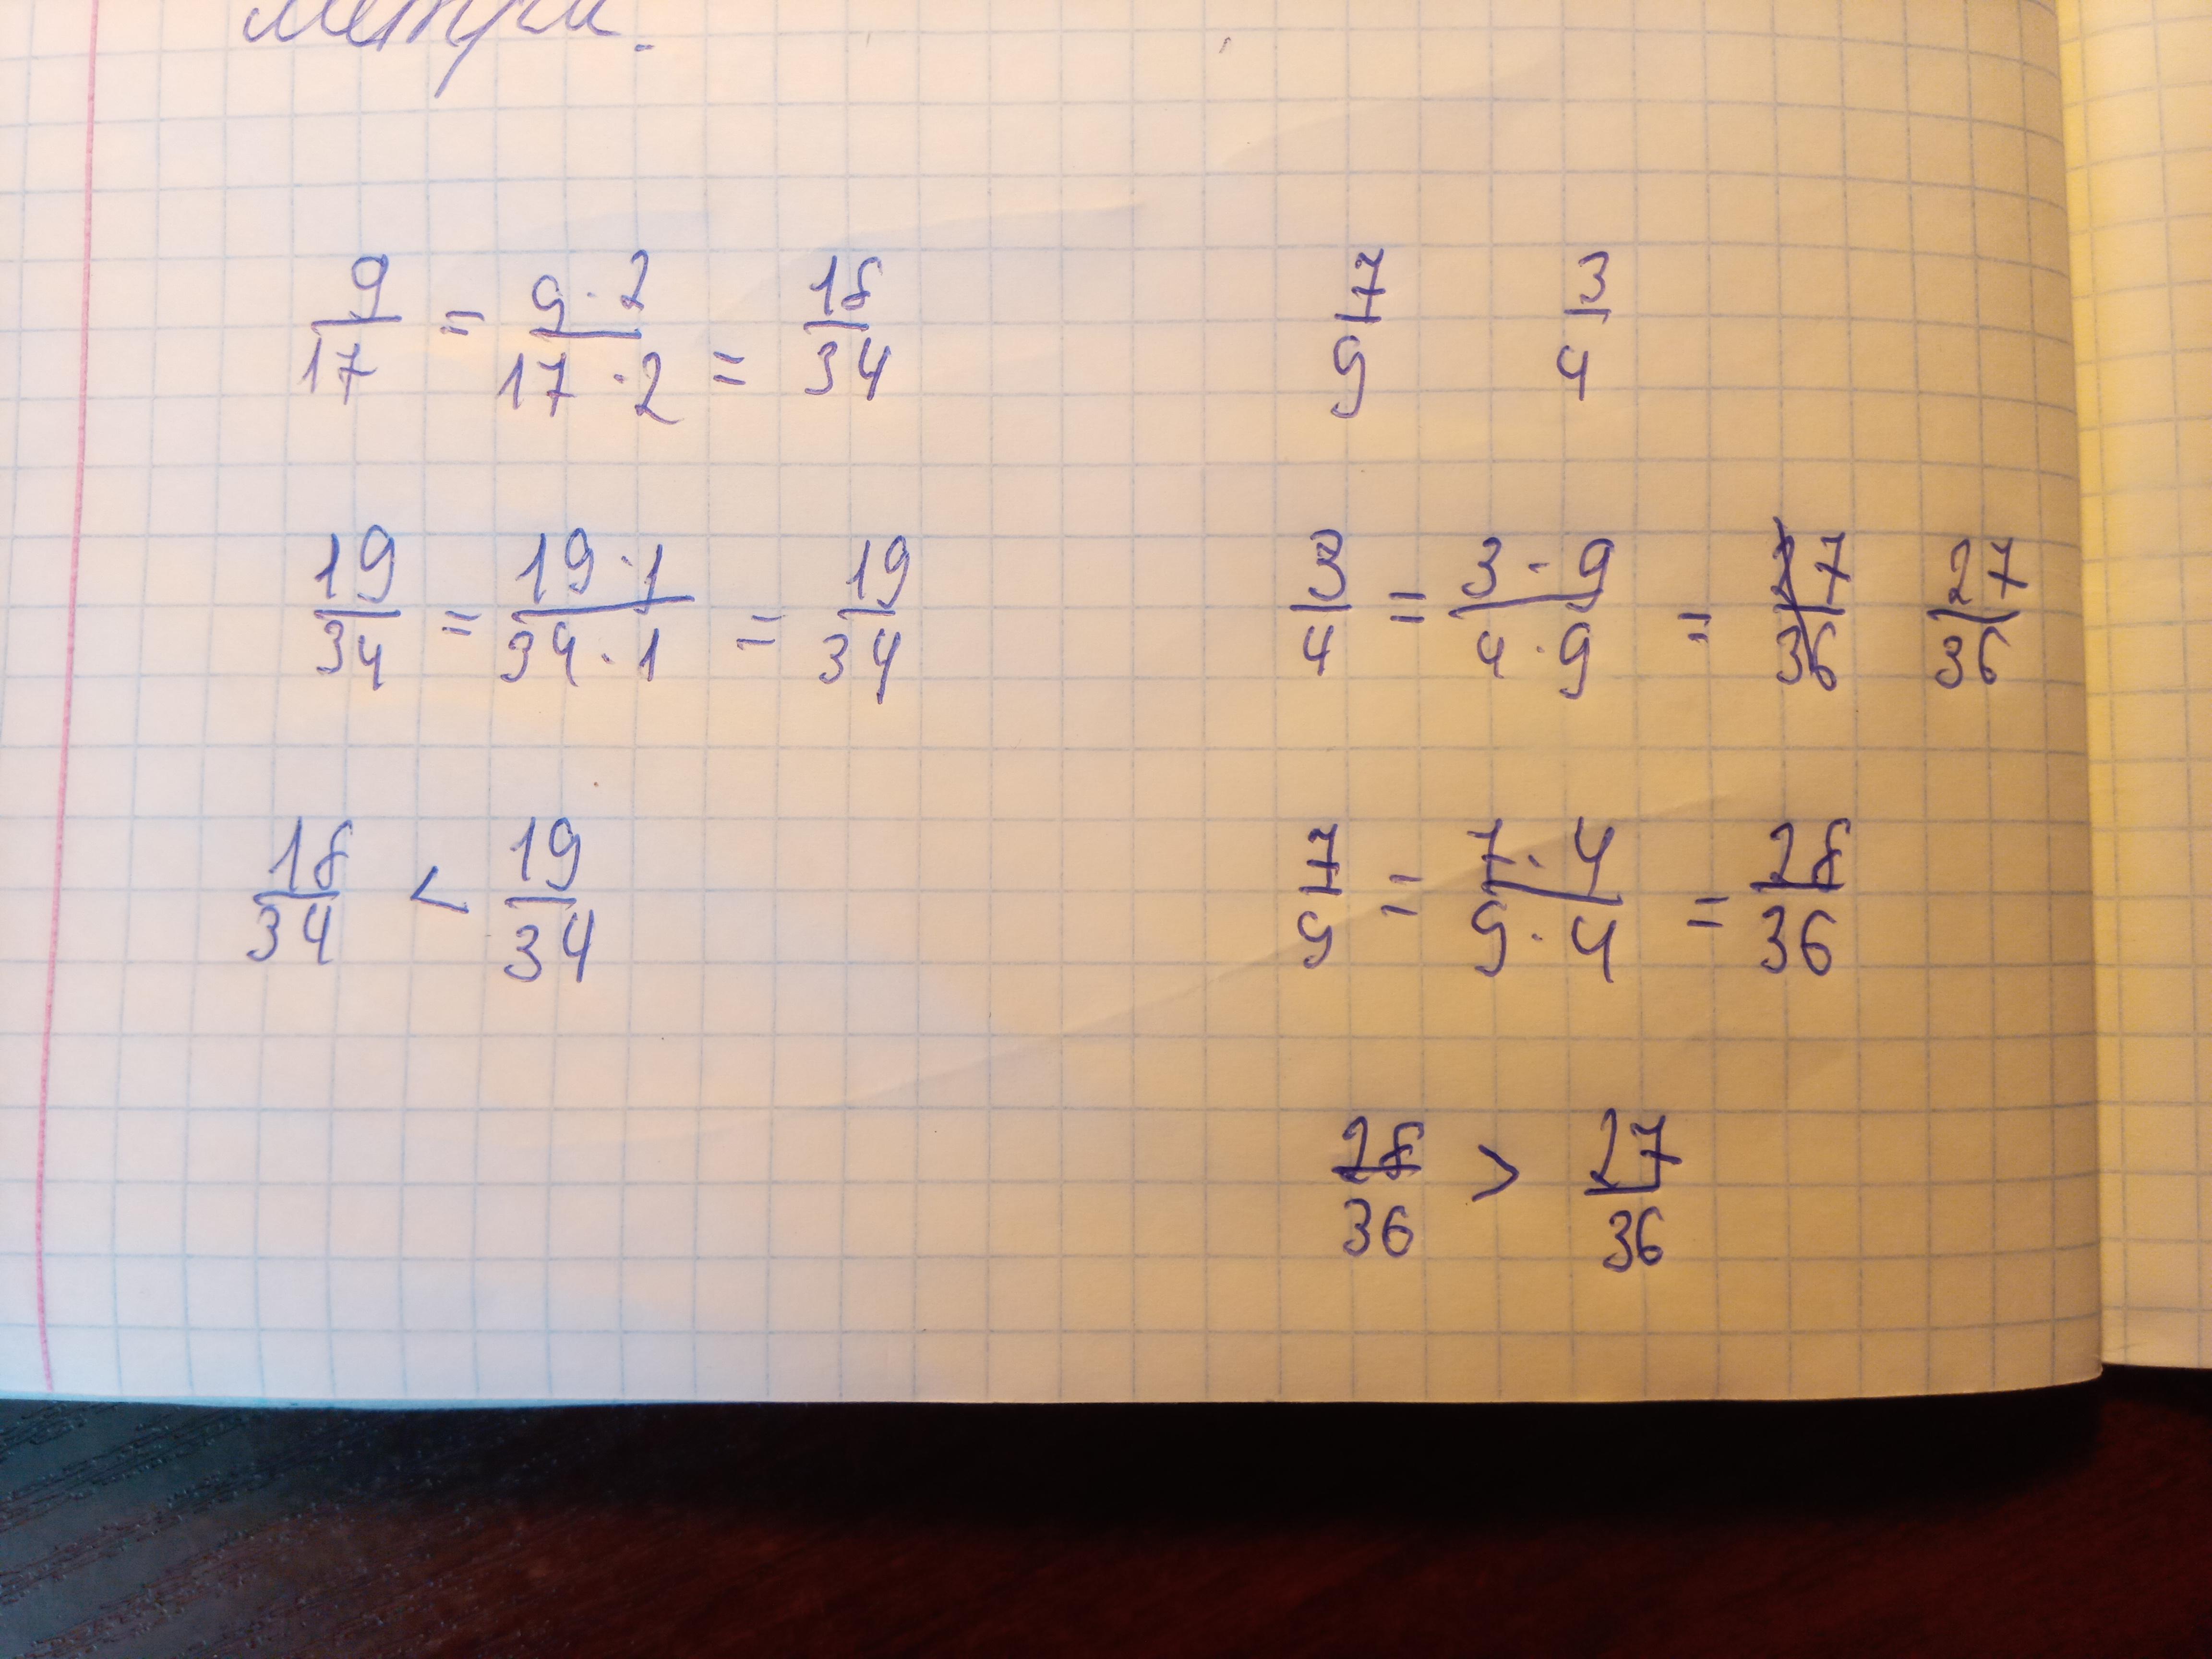 метра.
9/17 = 9·2/17·2 = 18/34
19/34 = 19·1/34·1 = 19/34
18/34 < 19/34
7/9 3/4
3/4 = 3·9/4·9 = 27/36 27/36
7/9 = 7·4/9·4 = 28/36
28/36 > 27/36